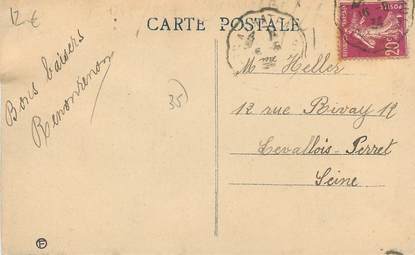 12 €
CARTE POSTALE
Bons baisers
35
Mr Heller
12 rue Rivay 12
Levallois-Perret
Seine
20c